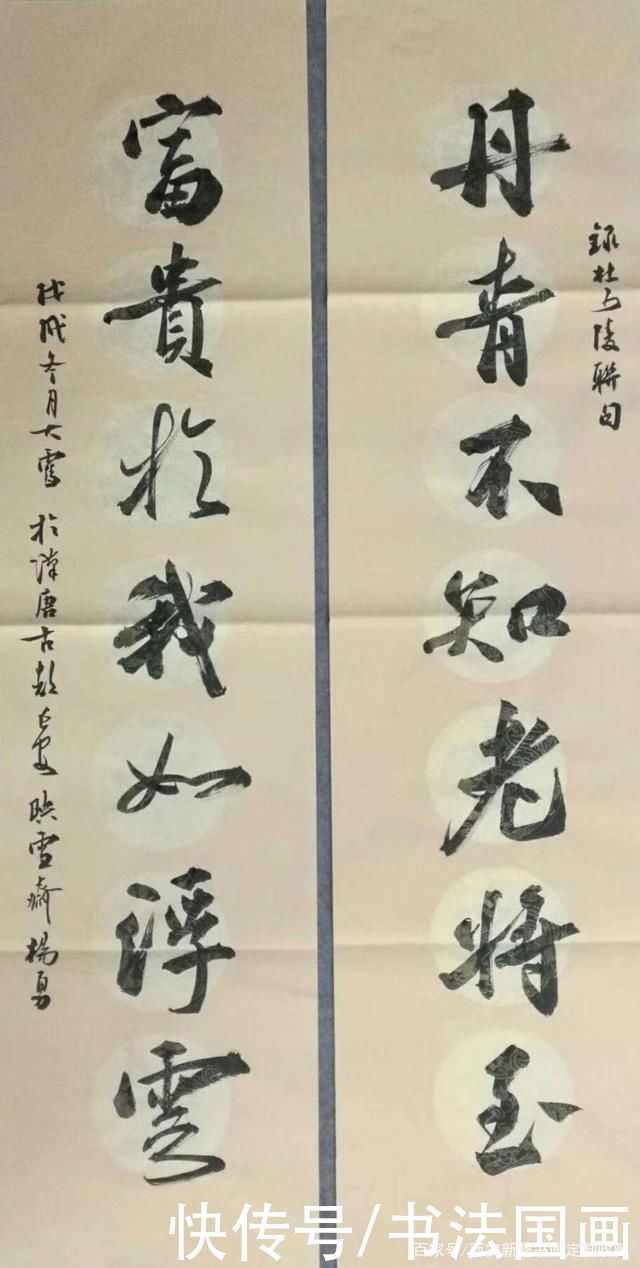 録杜少陵聯句
丹青不知老将至
富貴於我如浮雲
戊戌冬月大雪於漢唐古都長安映雪齋楊勇
快传号/书法国画
百家号/